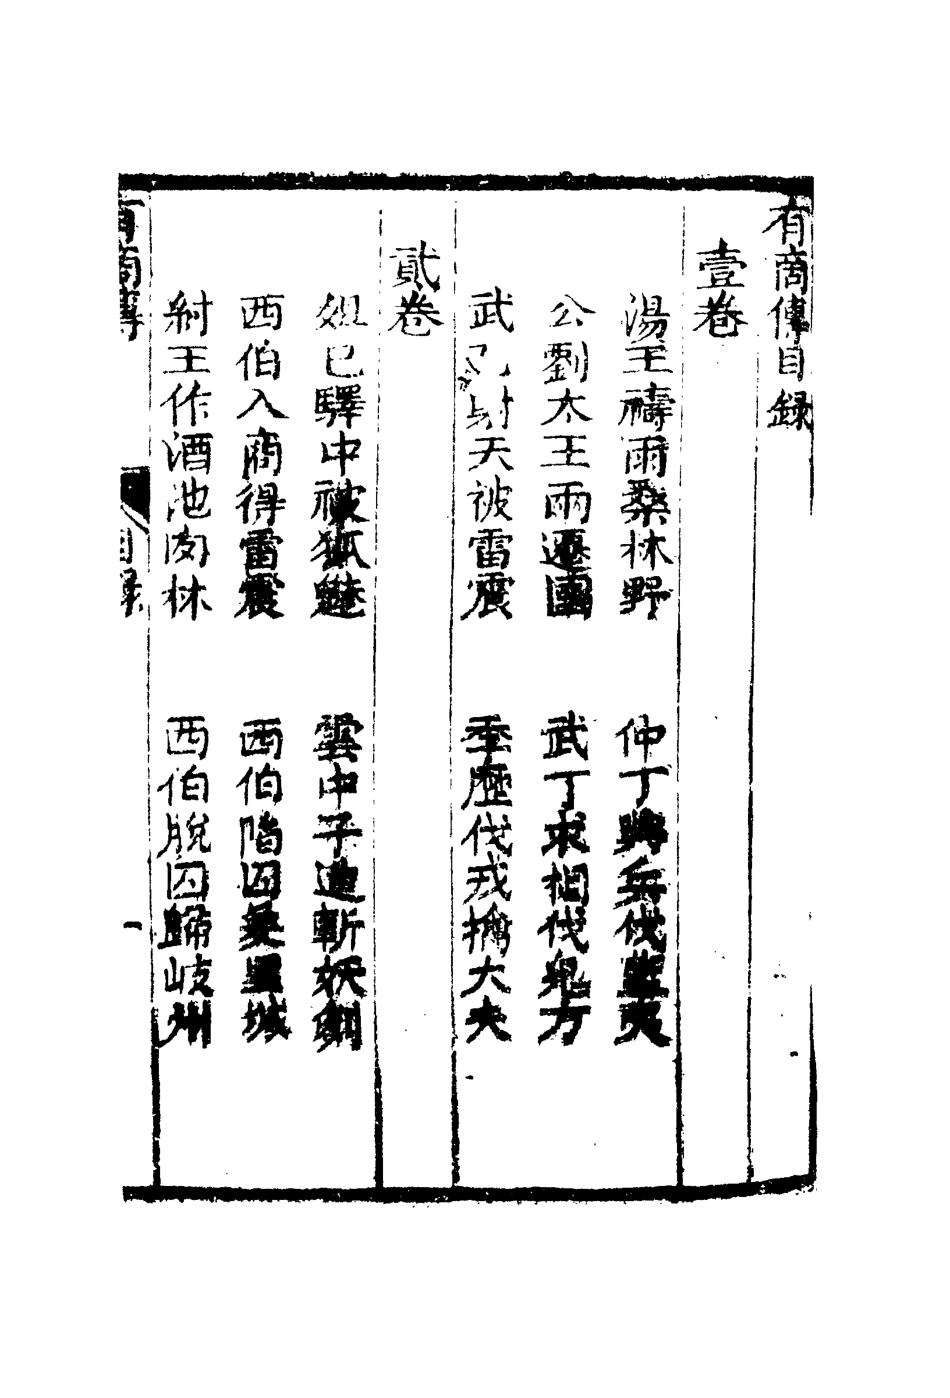 有商傳目録
壹卷
湯王禱雨桑林野　仲丁興兵伐藍夷
公劉太王兩遷國　武丁求相伐鬼方
武乙射天被雷震　季歷伐戎擒大夫
貳卷
妲已驛中被狐魅　雲中子進斬妖劍
西伯入商得雷震　西伯陷囚羑里城
紂王作酒池肉林　西伯脫囚歸岐州
有商傳　目録　一